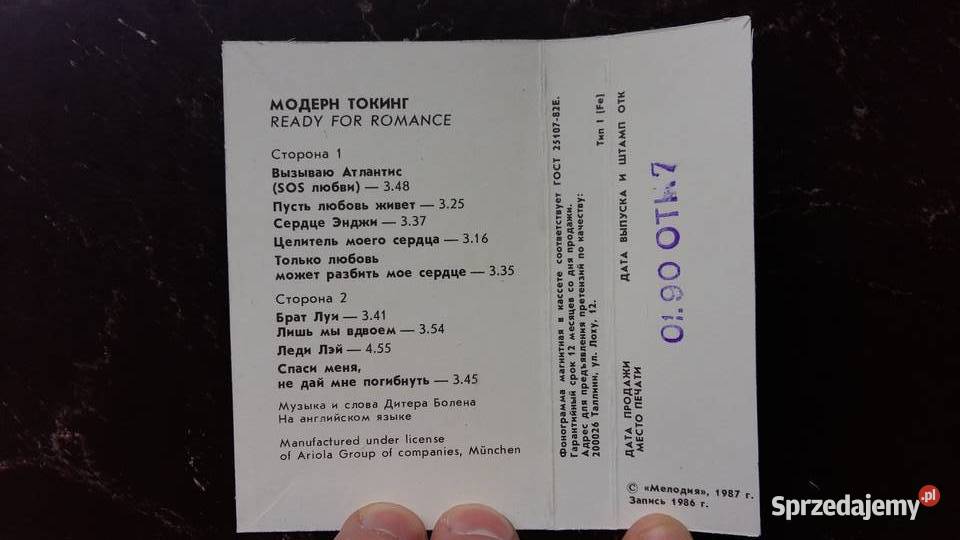 МОДЕРН ТОКИНГ
READY FOR ROMANCE
Сторона 1
Вызываю Атлантис
(SOS любви) — 3.48
Пусть любовь живет — 3.25
Сердце Энджи — 3.37
Целитель моего сердца — 3.16
Только любовь
может разбить мое сердце — 3.35
Сторона 2
Брат Луи — 3.41
Лишь мы вдвоем — 3.54
Леди Лэй — 4.55
Спаси меня,
не дай мне погибнуть — 3.45
Музыка и слова Дитера Болена
На английском языке
Manufactured under license
of Ariola Group of companies, München
Фонограмма магнитная в кассете соответствует ГОСТ 25107-82Е.
Гарантийный срок 12 месяцев со дня продажи.
Адрес для предъявления претензий по качеству:
200026 Таллинн, ул. Лоху, 12.
Тип I (Fe)
ДАТА ПРОДАЖИ
МЕСТО ПЕЧАТИ
ДАТА ВЫПУСКА И ШТАМП ОТК
01.90 ОТК.7
© «Мелодия», 1987 г.
Запись 1986 г.
Sprzedajemy.pl